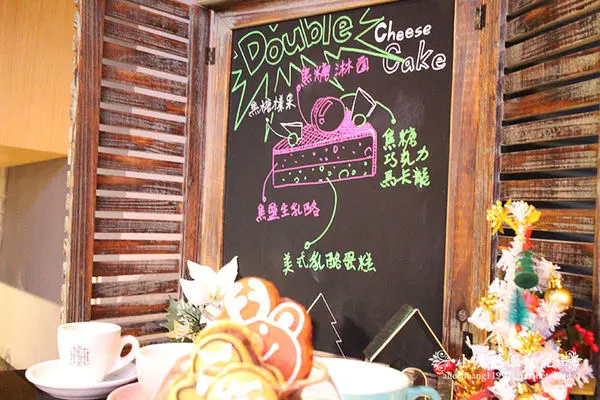 Double
Cheese
Cake
焦糖淋面
焦糖榛果
焦糖
巧克力
馬卡龍
焦鹽生乳酪
美式乳酪蛋糕